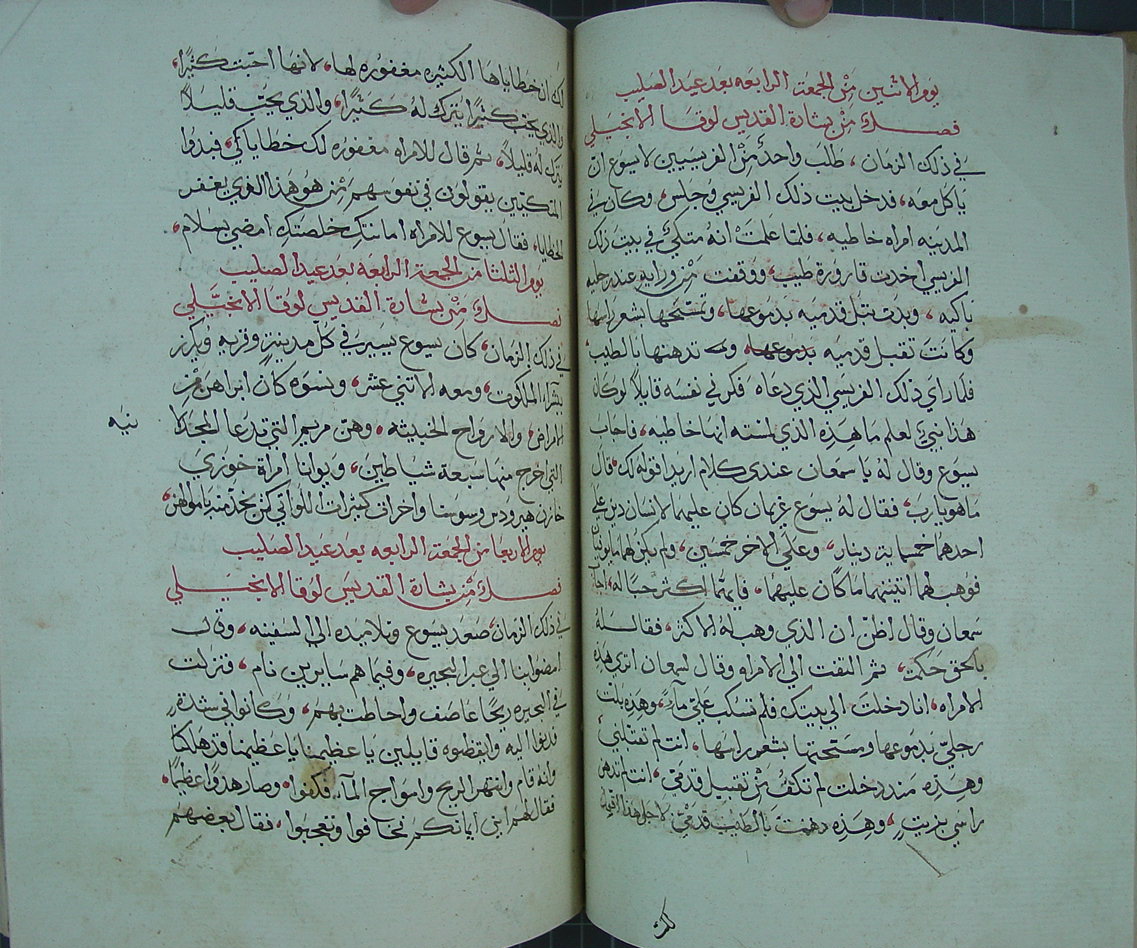 يوم الاثنين مِنْ الجمعة الرابعه بعد عيد الصليب
فصل مِنْ بشارة القديس لوقا الانجيلي
في ذلك الزمان، طلب واحدٌ مِنْ الفريسيين لايسوع ان
ياكل معه، فدخل بيت ذلك الفريسي وجلس، وكان في
المدينه امراه خاطيه، فلما علمتْ انهُ متكيٌ في بيت ذلك
الفريسي اخذت قارورة طيب، ووقفت مِنْ ورايهِ عند رجليه
باكيه، وبدت تبل قدميه بدموعها، وتمسّحها بشعر راسها
وكانت تقبل قدميه بدموعها، وتدهنها بالطيب،
فلما راي ذلك الفريسي الذي دعاه فكر في نفسه قايلاً لو كان
هذا نبيٌ لعلم ما هذه الذي لمسته انها خاطيه، فاجاب
يسوع وقال لهُ يا سمعان عندي كلام اريد اقوله لك، قال
ما هو يارب، فقال لهُ يسوع غريمان كان عليهما لانسان دين علي
احدهما خمسماية دينار، وعلي الاخر خمسين، ولم يكن لهما ما يوفيان
فوهب لهما اثنينهما ما كان عليهما، فايهما اكثر حبًا له، اجاب
سمعان وقال اظنّ ان الذي وهب له الاكثر، فقال لهُ
بالحق حكمت، ثم التفت الي الامراه وقال لسمعان اتري هذه
الامراه، انا دخلت الي بيتك فلم تسكب عليّ مآءً، وهذه بلت
رجليّ بدموعها ومسحتها بشعر راسها، انت لم تقبلني
وهذه منذ دخلت لم تكفّ مِنْ تقبيل قدميّ، انت لم تدهن
راسي بزيتٍ، وهذه دهنت بالطيب قدميّ، لاجل هذا اقول
لك
لك ان خطاياها الكثيره مغفوره لها، لانها احبت كثيرًا،
والذي يحب كثيرًا يترك لهُ كثيرًا، والذي يحب قليلاً
يترك له قليلاً، ثم قال للامراه مغفوره لك خطاياكي، فبدوا
المتكيين يقولون في نفوسهم مَنْ هو هذا الذي يغفر
الخطايا، فقال يسوع للامراه امانتكِ خلصتكِ امضي بسلام،
يوم الثلثا من الجمعة الرابعه بعد عيد الصليب
فصل مِنْ بشارة القديس لوقا الانجيلي
في ذلك الزمان، كان يسوع يسير في كلّ مدينةٍ وقريه ويكرز
بشراء الملكوت، ومعه الاثني عشر، ونسوه كان ابراهن مِنْ
الامراض والارواح الخبيثه، وهنّ مريم التي تدعا المجدلا
نيه
التي اخرج منها سبعة شياطين، ويوانا امراة خوزي
خازن هيرودس وسوسنا واخرات كثيرات اللواتي كن يخدمنه باموالهنّ،
يوم الاربعا من الجمعة الرابعه بعد عيد الصليب
فصل مِنْ بشارة القديس لوقا الانجيلي
في ذلك الزمان، صعد يسوع وتلاميذه الي السفينه، وقال
امضوا بنا الي عبر البحيره، وفيما هم سايرين نام، فنزلت
في البحيره ريحًا عاصف واحاطت بهم، وكانوا في شده
فدنوا اليه وايقظوه قايلين يا عظيمنا يا عظيمنا قد هلكنا
وانه قام وانتهر الريح وامواج المآء، فكفوا، وصار هدوًا عظيمًا،
فقال لهم اين ايمانكم فخافوا وتعجبوا، فقال بعضهم